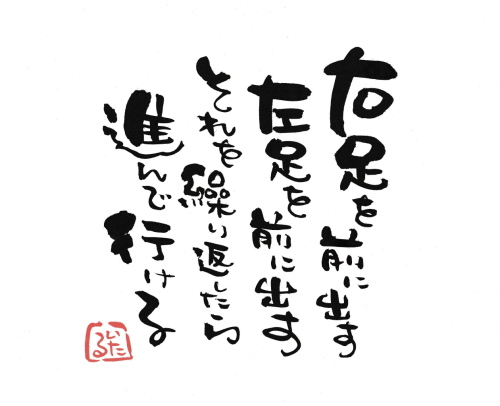 右足を前に出す
左足を前に出す
それを繰り返したら
進んで行ける